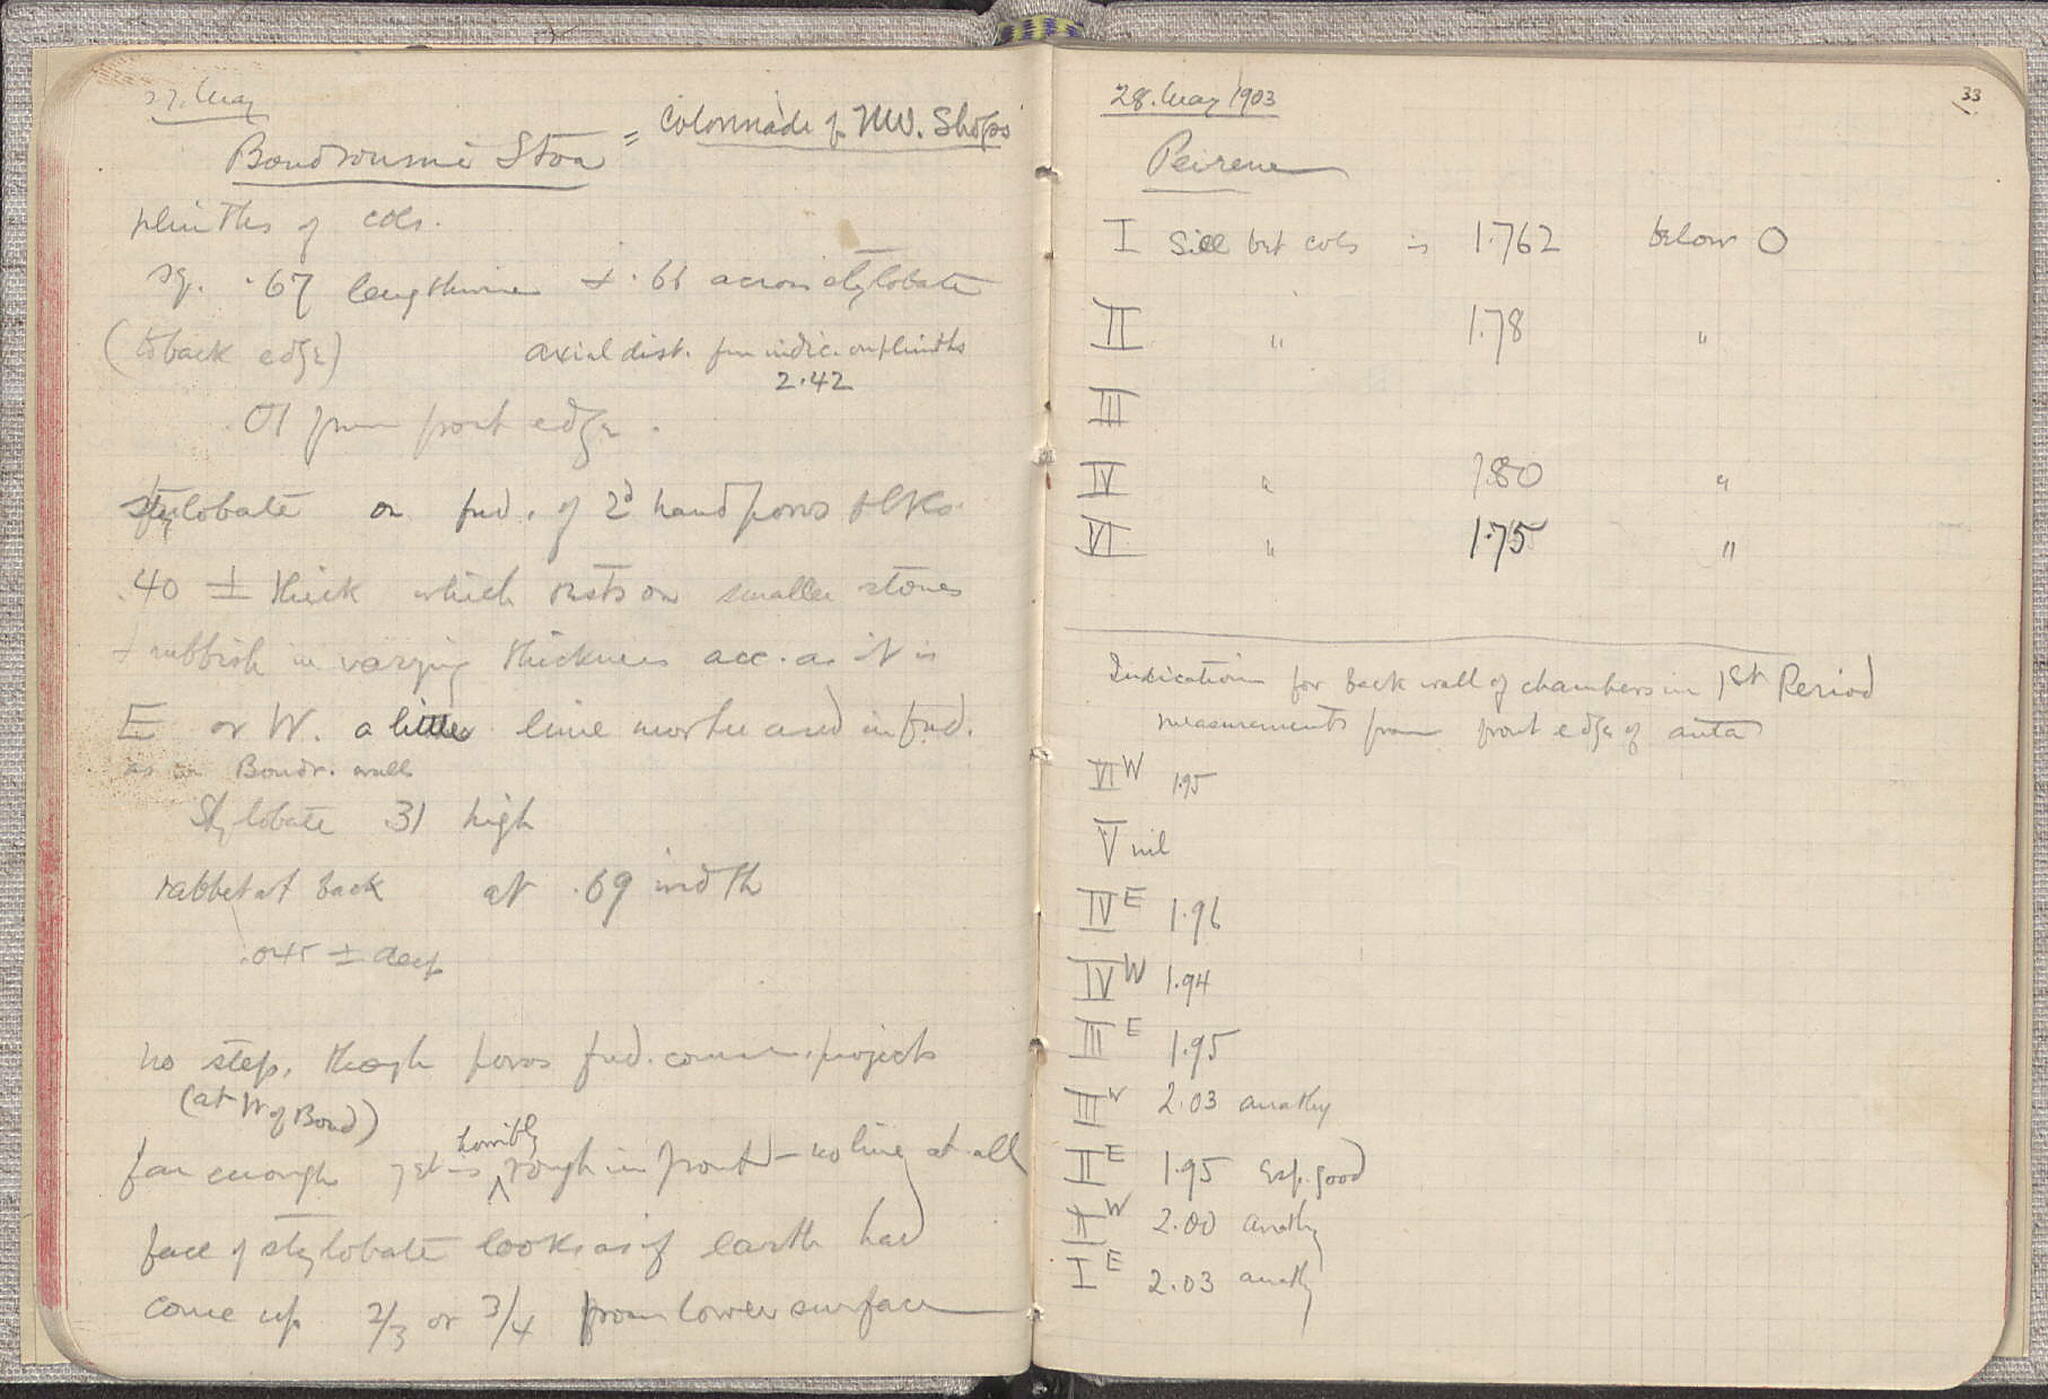 27. May
Boudroumi Stoa = Colonnade of NW. Shops
plinths of cols.
sq. .67 lengthwise + .66 across stylobate
(to back edge) axial dist. from indic. on plinths
2.42
.01 from front edge.
stylobate on fnd. of 2d hand poros blks.
.40 ± thick which rests on smaller stones
+ rubbish in varying thickness acc. as it is
E or W. a little lime mortar used in fnd.
as in Boudr. wall
Stylobate .31 high
rabbet at back at .69 width
.045 ± deep
no step, though poros fnd. course projects
(at W of Boud)
far enough yet is horribly rough in front – no line at all
face of stylobate looks as if earth had
come up 2/3 or 3/4 from lower surface
28. May 1903
33
Peirene
I Sill bet cols is 1.762 below O
II " 1.78 "
III
IV " 1.80 "
VI " 1.75 "
Indications for back wall of chambers in 1st Period
measurements from front edge of anta
VI W 1.95
V nil
IV E 1.96
IV W 1.94
III E 1.95
III W 2.03 anathy
II E 1.95 Esp. good
II W 2.00 anathy
I E 2.03 anathy